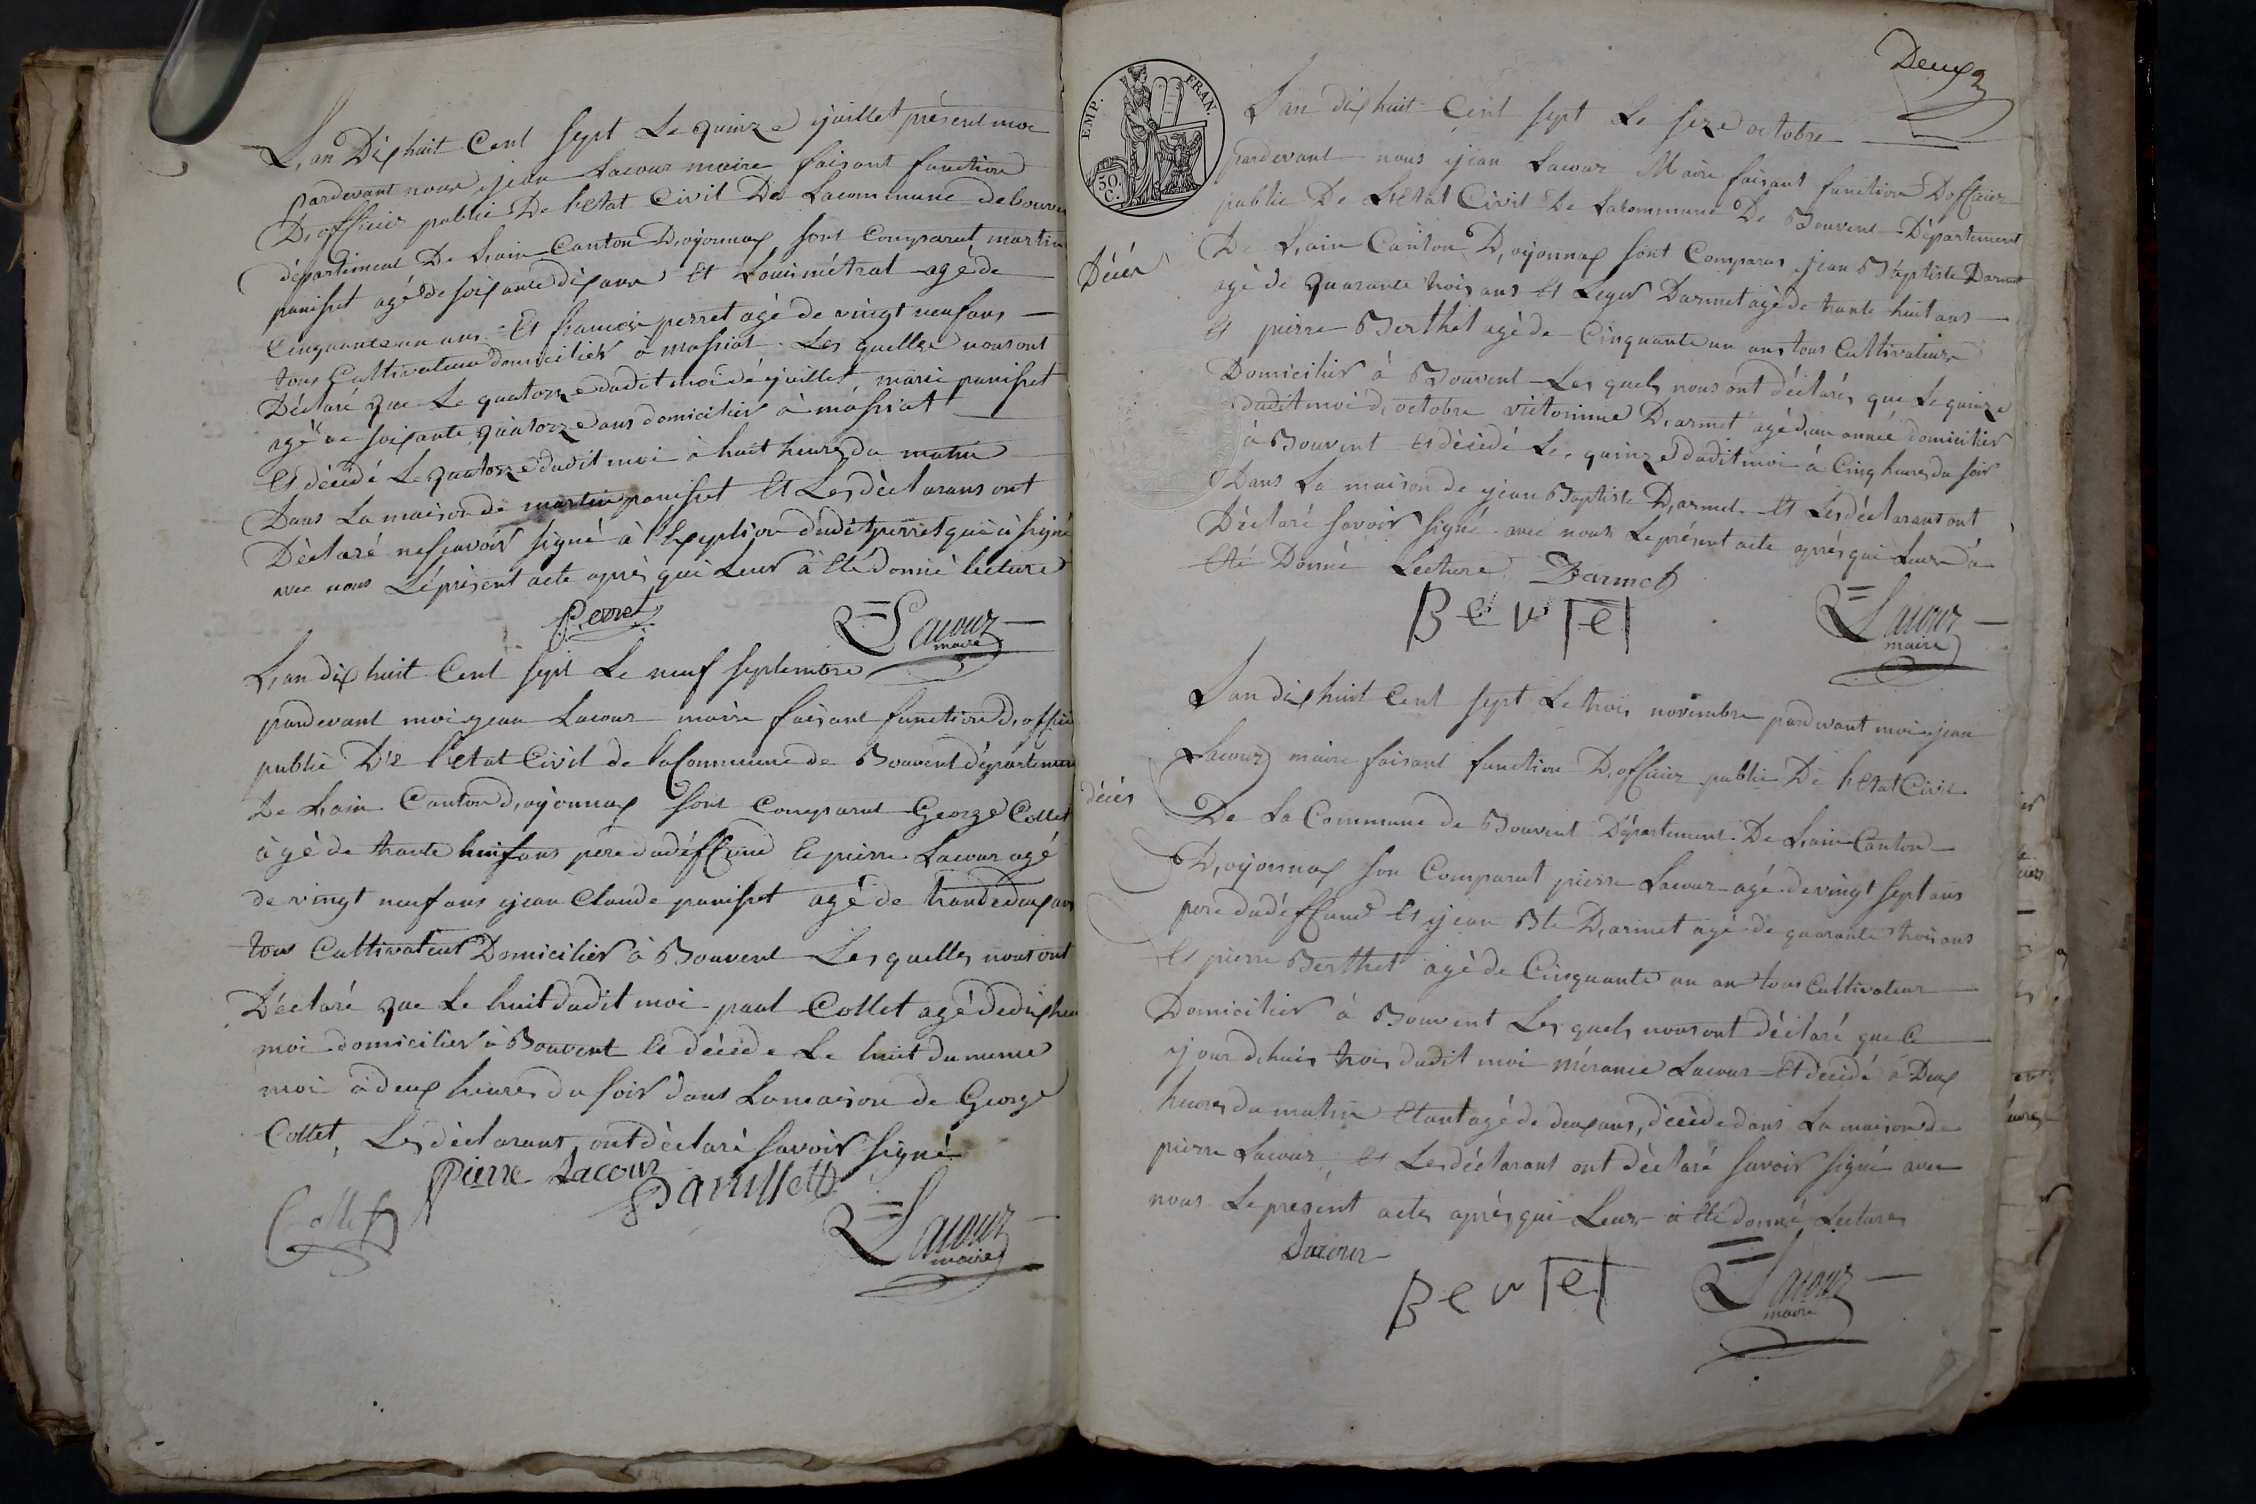 L,an Dix huit Cent Sept Le quinze juillet présent moi
pardevant nous jean Lacour maire faisant function
D,officier public De l'etat Civil De Lacommune de bouve
département De L,ain Canton D,oyonnax sont Comparut martin
panisset agé de soixante dix ans Et Louis métral agé de
Cinquante un ans Et francois perret agé de vingt neuf ans
tous Cultivateur domicilier a massiat Les quelle nous ont
Déclaré que Le quatorze dudit moi de juillet, marie panisset
agé de soixante quatorze ans domicilier à massiat
Et décédé Le quatorze dudit moi à huit heures du matin
Dans La maison de martin panisset Et Les déclarans ont
Déclaré ne scavoir signé à l'exeption dudit perret qui à signé
avec nous Le présent acte après qui Leur à Eté donné lecture
Perret
Lacour
maire
L,an dix huit Cent sept Le neuf septembre
pardevant moi jean Lacour maire faisant function d,officie
public De l'etat Civil de la Commune de Bouvent département
De L,ain Canton d,oyonnax sont Comparut George Collet
àgé de trante huit ans pere du deffund Et pierre Lacour agé
de vingt neuf ans jean Claude panisset agé de trante deux ans
tous Cultivateur Domicilier à Bouvent Les quelles nous ont
Déclaré que Le huit dudit moi paul Collet agé de dix hui
moi domicilier à Bouvent Et décédé Le huit du meme
moi à deux heures du soir dans La maison de George
Collet, Les déclarant, ont déclaré savoir signé
Pierre Lacour
Panissett
Collet
Lacour
maire
Deux
EMP. FRAN.
50. C.
L an dix huit Cent sept Le seze octobre
pardevant nous jean Lacour Maire faisant function D'officier
public De L'Etat Civil De La Commune De Bouvent Département
De L,ain Canton D,oyonnax sont Comparus jean Baptiste Darmet
Décés
agé de quarante trois ans Et Leger Darmet agé de trante huit ans
Et pierre Berthet agé de Cinquante un ans tous Cultivateur
Domicilier à Bouvent Les quels nous ont déclarés que Le quinze
dudit moi d,octobre victorinne D,armet agé d,un année domicilier
à Bouvent Et décédé Le, quinze dudit moi à Cinq heures du soir
Dans La maison de jean Baptiste D,armet Et Les déclarant ont
Déclaré savoir signé avec nous Le présent acte après qui Leur à
Eté Donné Lecture
Darmet
BerTet
Lacour
maire
L an dix huit Cent sept Le trois novembre pardevant moi jean
Lacour maire faisant function D,officier public De l'Etat Civil
décés
De La Commune de Bouvent Département De L,ain Canton
D,oyonnax son Comparut pierre Lacour agé de vingt sept ans
pere du deffund Et jean Bte D,armet agé de quarante trois ans
Et pierre Berthet agé de Cinquante un an tous Cultivateur
Domicilier à Bouvent Les quels nous ont déclaré que Ce
jour dhuis trois dudit moi mérance Lacour Et décédé à Deux
heures du matin Etant agé de deux ans, décédé dans La maison de
pierre Lacour, Et Les déclarant ont déclaré savoir signé avec
nous Le présent acte après qui Leur à Eté donné Lecture
Lacour
BerTet
Lacour
maire